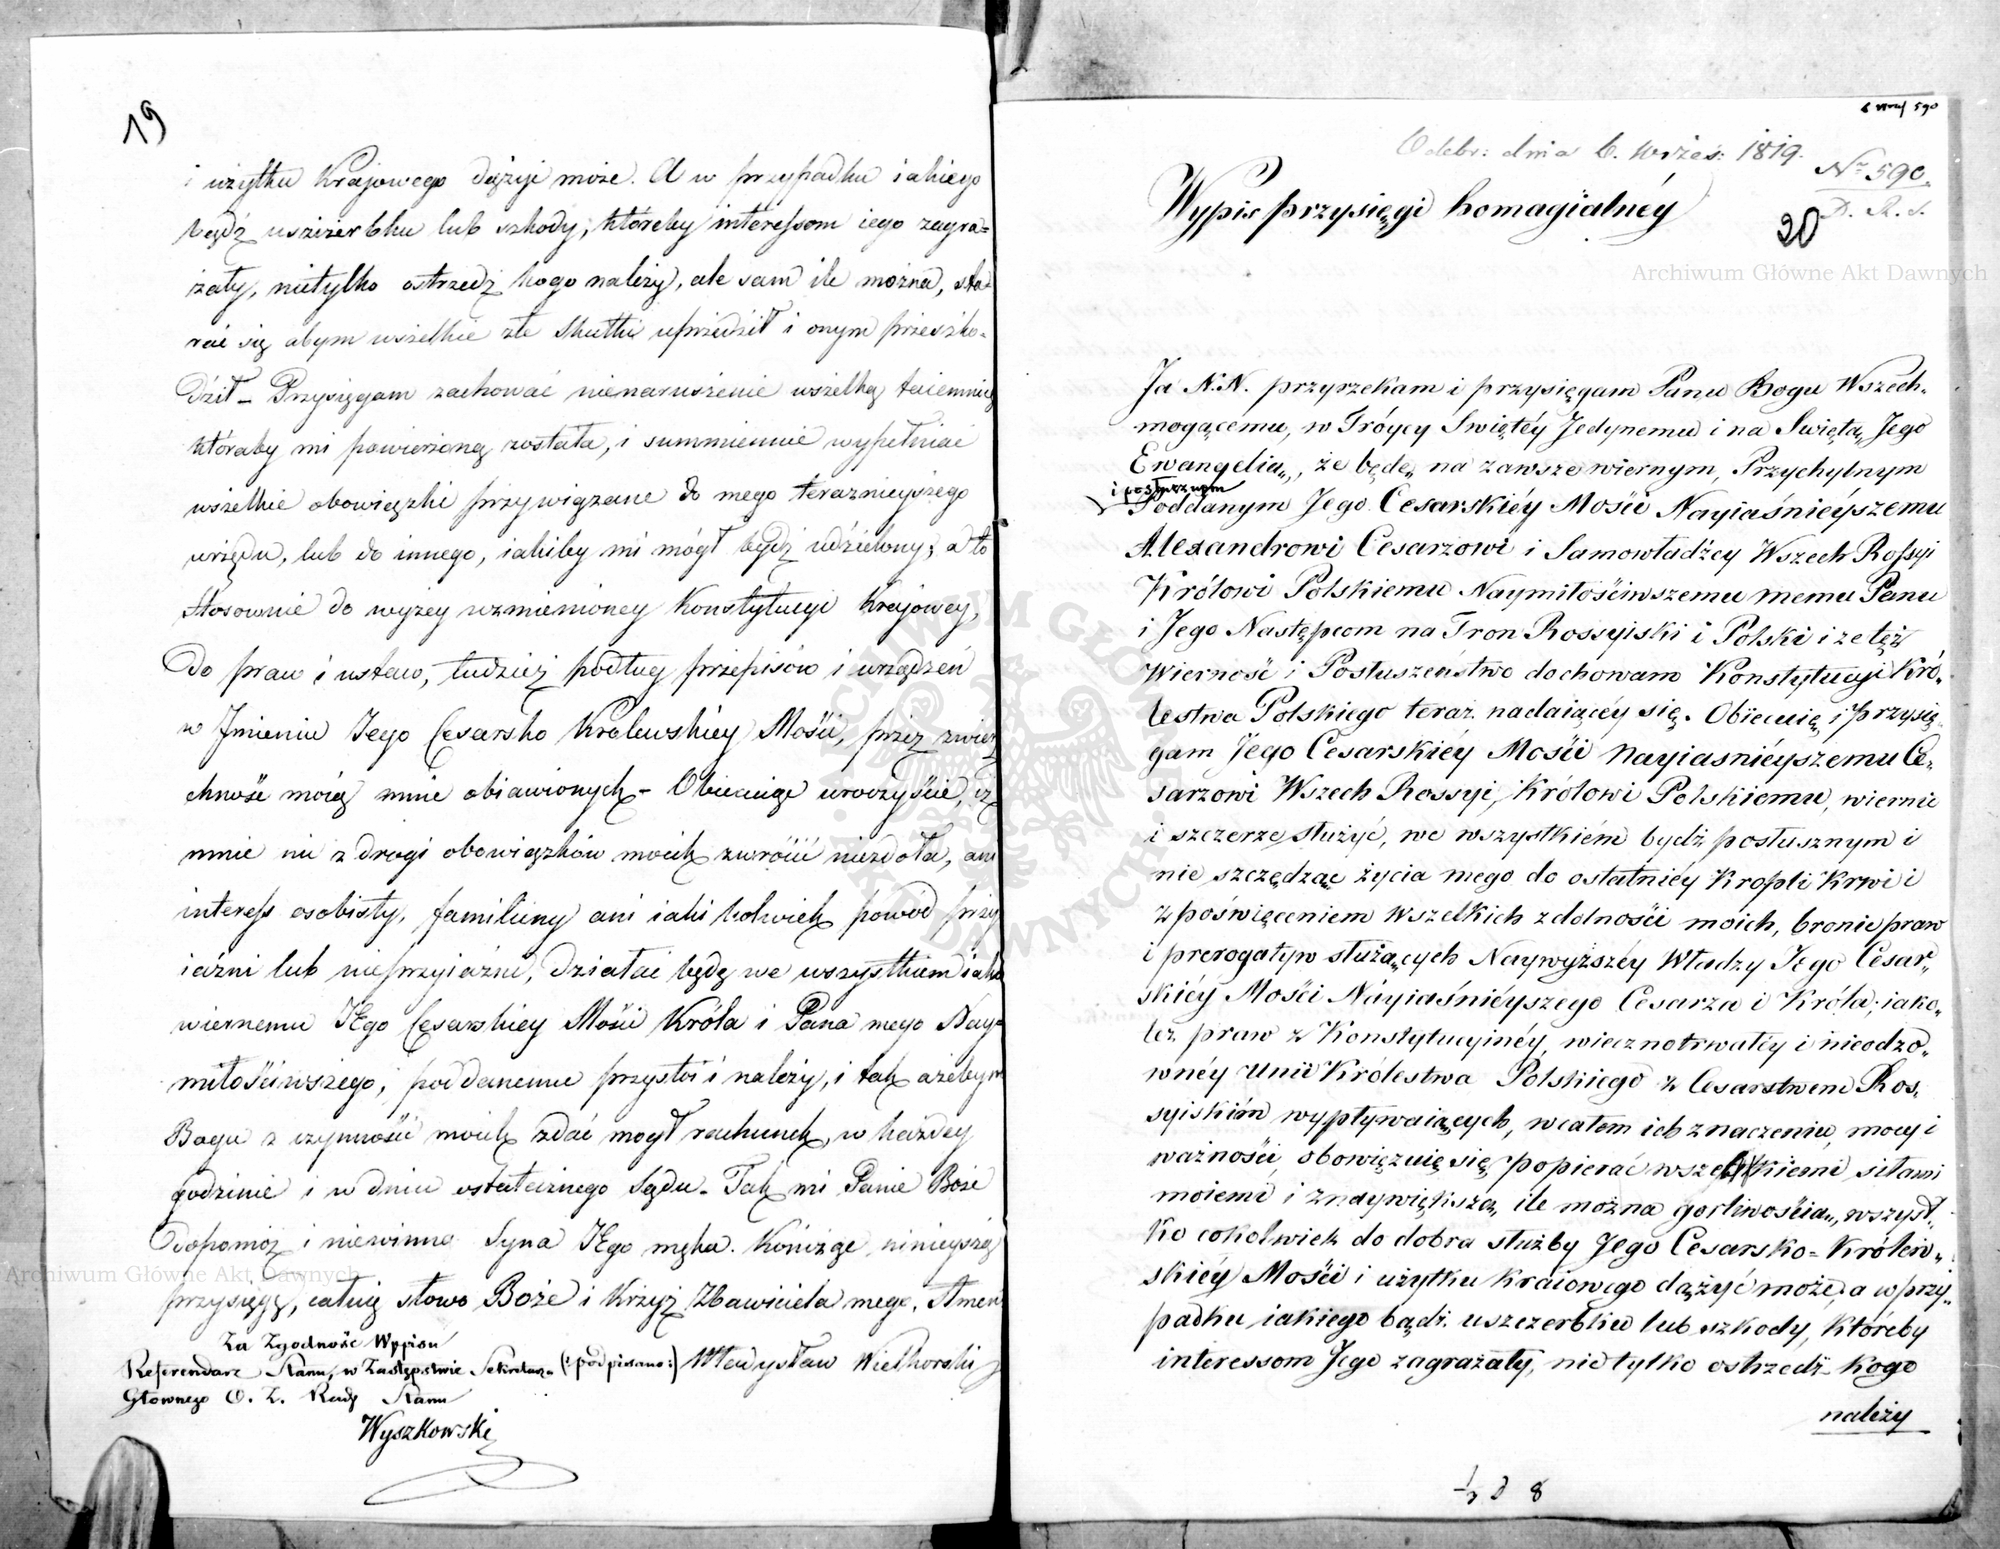 19
i użytku Krajowego dążyć może. A w przypadku iakiego
bądź uszczerbku lub szkody, któreby interessom iego zagra=
żały, nietylko ostrzedz kogo należy, ale sam ile można, sta
rać się abym wszelkie złe skutki uprzedził i onym przeszko-
dził – Przysięgam zachować nienaruszenie wszelką taiemnicę
któraby mi powierzoną została, i summiennie wypełniać
wszelkie obowiązki przywiązane do mego teraznieyszego
urzędu, lub do innego, iakiby mi mógł bydź udzielony; a to
stosownie do wyżey wzmienioney Konstytucyi Krajowey,
Do praw i ustaw, tudzież podług przepisów i urządzeń
w Jmieniu Jego Cesarsko Królewskiéy Mości, przez zwierz
chność moią mnie obiawionych – Obiecuige uroczyście, iż
mnie nic z drogi obowiązków moich zwrócić niezdoła, ani
interess osobisty, familiiny ani iaki kolwiek powód przy
iaźni lub nieprzyiaźni, działać będę we wszystkiem iako
wiernemu JEgo Cesarskiey Mości Króla i Pana mego Nay=
miłościwszego, poddanemu przystoi i należy, i tak ażebym
Bogu z czynności moich zdać mógł rachunek, w każdey
godzinie i w dniu ostatecznego Sądu – Tak mi Panie Boże
Dopomóż i niewinna Syna JEgo męka. Kończąc ninieyszą
przysięgę, całuię słowo Boże i Krzyż Zbawiciela mego. Amen
Za Zgodność Wypisu
Referendarz Stanu, w Zastępstwie Sekretarza (: podpisano :) Władysław Wielhorski
Głownego O. Z. Rady Stanu
Wyszkowski
590
Odebr: dnia 6. Wrześ: 1819.
Nº 590.
D. R. S.
Wypis przysięgi homagialnéy
20
Archiwum Główne Akt Dawnych
Ja N.N. przyrzekam i przysięgam Panu Bogu Wszech-
mogącemu, w Tróycy Swiętéy Jedynemu i na Swiętą Jego
Ewangelią, że będę na zawsze wiernym, Przychylnym
i posłusznym
Poddanym Jego Cesarskiéy Mości Nayiaśniéyszemu
Alexandrowi Cesarzowi i Samowładzcy Wszech Rossyi
Królowi Polskiemu Naymiłościwszemu memu Panu
i Jego Następcom na Tron Rossyiski i Polski i że téż
Wierność i Posłuszeństwo dochowam Konstytucyi Kró-
lestwa Polskiego teraz nadaiącéy się. Obiecuię i przysię
gam Jego Cesarskiéy Mości Nayiasniéyszemu Ce-
sarzowi Wszech Rossyi, Królowi Polskiemu, wiernie
i szczerze służyć, we wszystkiém bydź posłusznym i
nie szczędząc życia mego do ostatniéy Kropli Krwi i
z poświęceniem Wszelkich zdolności moich, bronić praw
i prerogatyw służących Naywyższéy Władzy Jego Cesar-
skiéy Mości Náyiaśniéyszego Cesarza i Króla; iako-
téż praw z Konstytucyinéy, wiecznotrwałéy i nieodzo-
wnéy Unii Królestwa Polskiego z Cesarstwem Ros-
syiskim wypływaiących, w całem ich znaczeniu, mocy i
ważności, obowięzuię się popierać wszelkiemi siłami
moiemi i z naywiększą ile można gorliwością, wszyst-
ko cokolwiek do dobra służby Jego Cesarsko=Królew-
skiéy Mości i użytku Kraiowego dążyć może, a w przy-
padku iakiego bądź uszczerbku lub szkody, któreby
interessom Jego zagrażały, nie tylko ostrzedz Kogo
należy
Archiwum Główne Akt Dawnych
ARCHIWUM GŁÓWNE AKT DAWNYCH